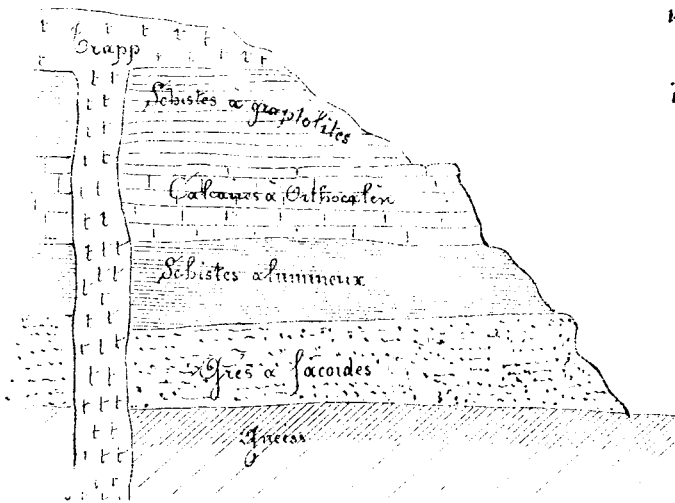 Trapp
Schistes à graptolites
Calcaires à Orthocalèn
Schistes alumineux
Grès à facoides
Gneiss